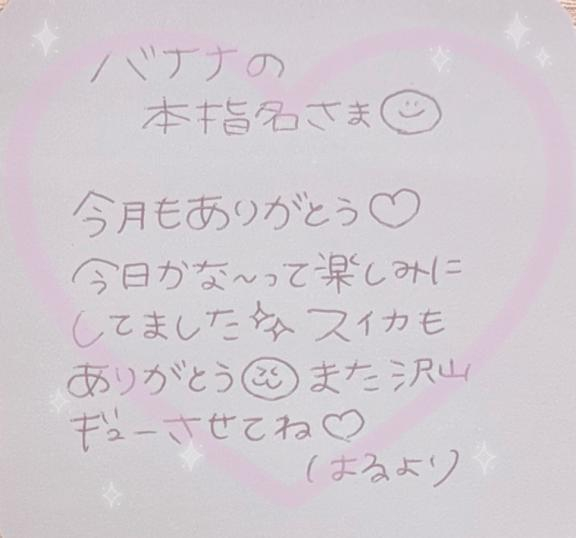 バナナの
本指名さま
今月もありがとう♡
今日かな〜って楽しみに
してました スイカも
ありがとう また沢山
ギューさせてね♡
はるより